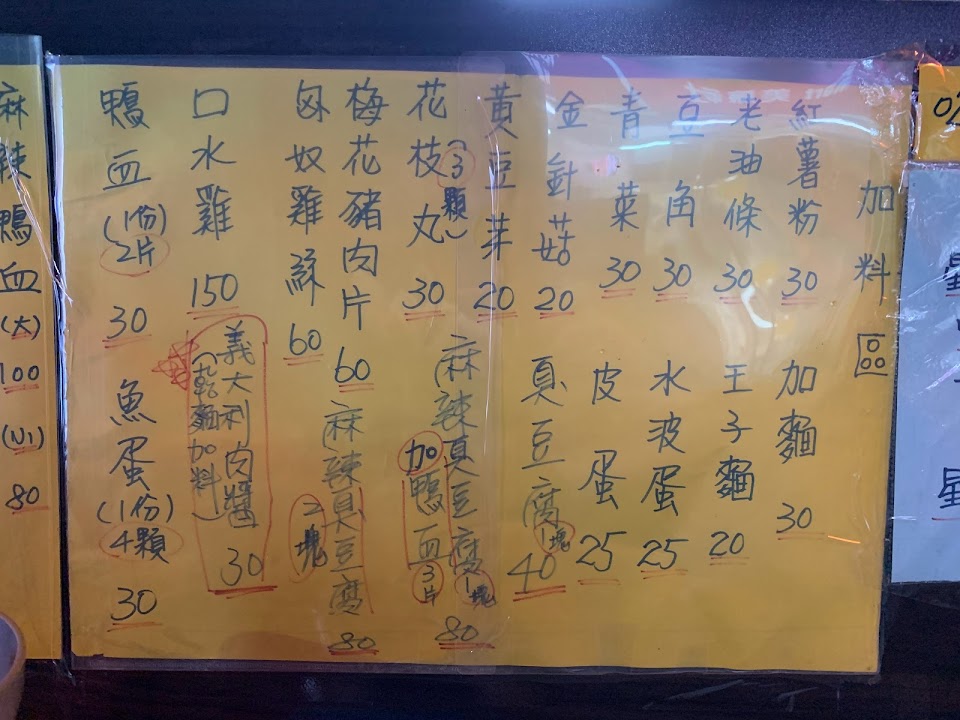 加料區
紅薯粉 30
老油條 30
豆角 30
青菜 30
金針菇 20
黃豆芽 20
花枝丸(3顆) 30
梅花豬肉片 60
匈奴雞絲 60
口水雞 150
鴨血(1份)2片 30
加麵 30
王子麵 20
水波蛋 25
皮蛋 25
臭豆腐1塊 40
麻辣臭豆腐1塊
加鴨血3片 80
麻辣臭豆腐2塊 80
義大利肉醬
(乾麵加料) 30
魚蛋(1份)4顆 30
麻辣鴨血(大)100(小)80